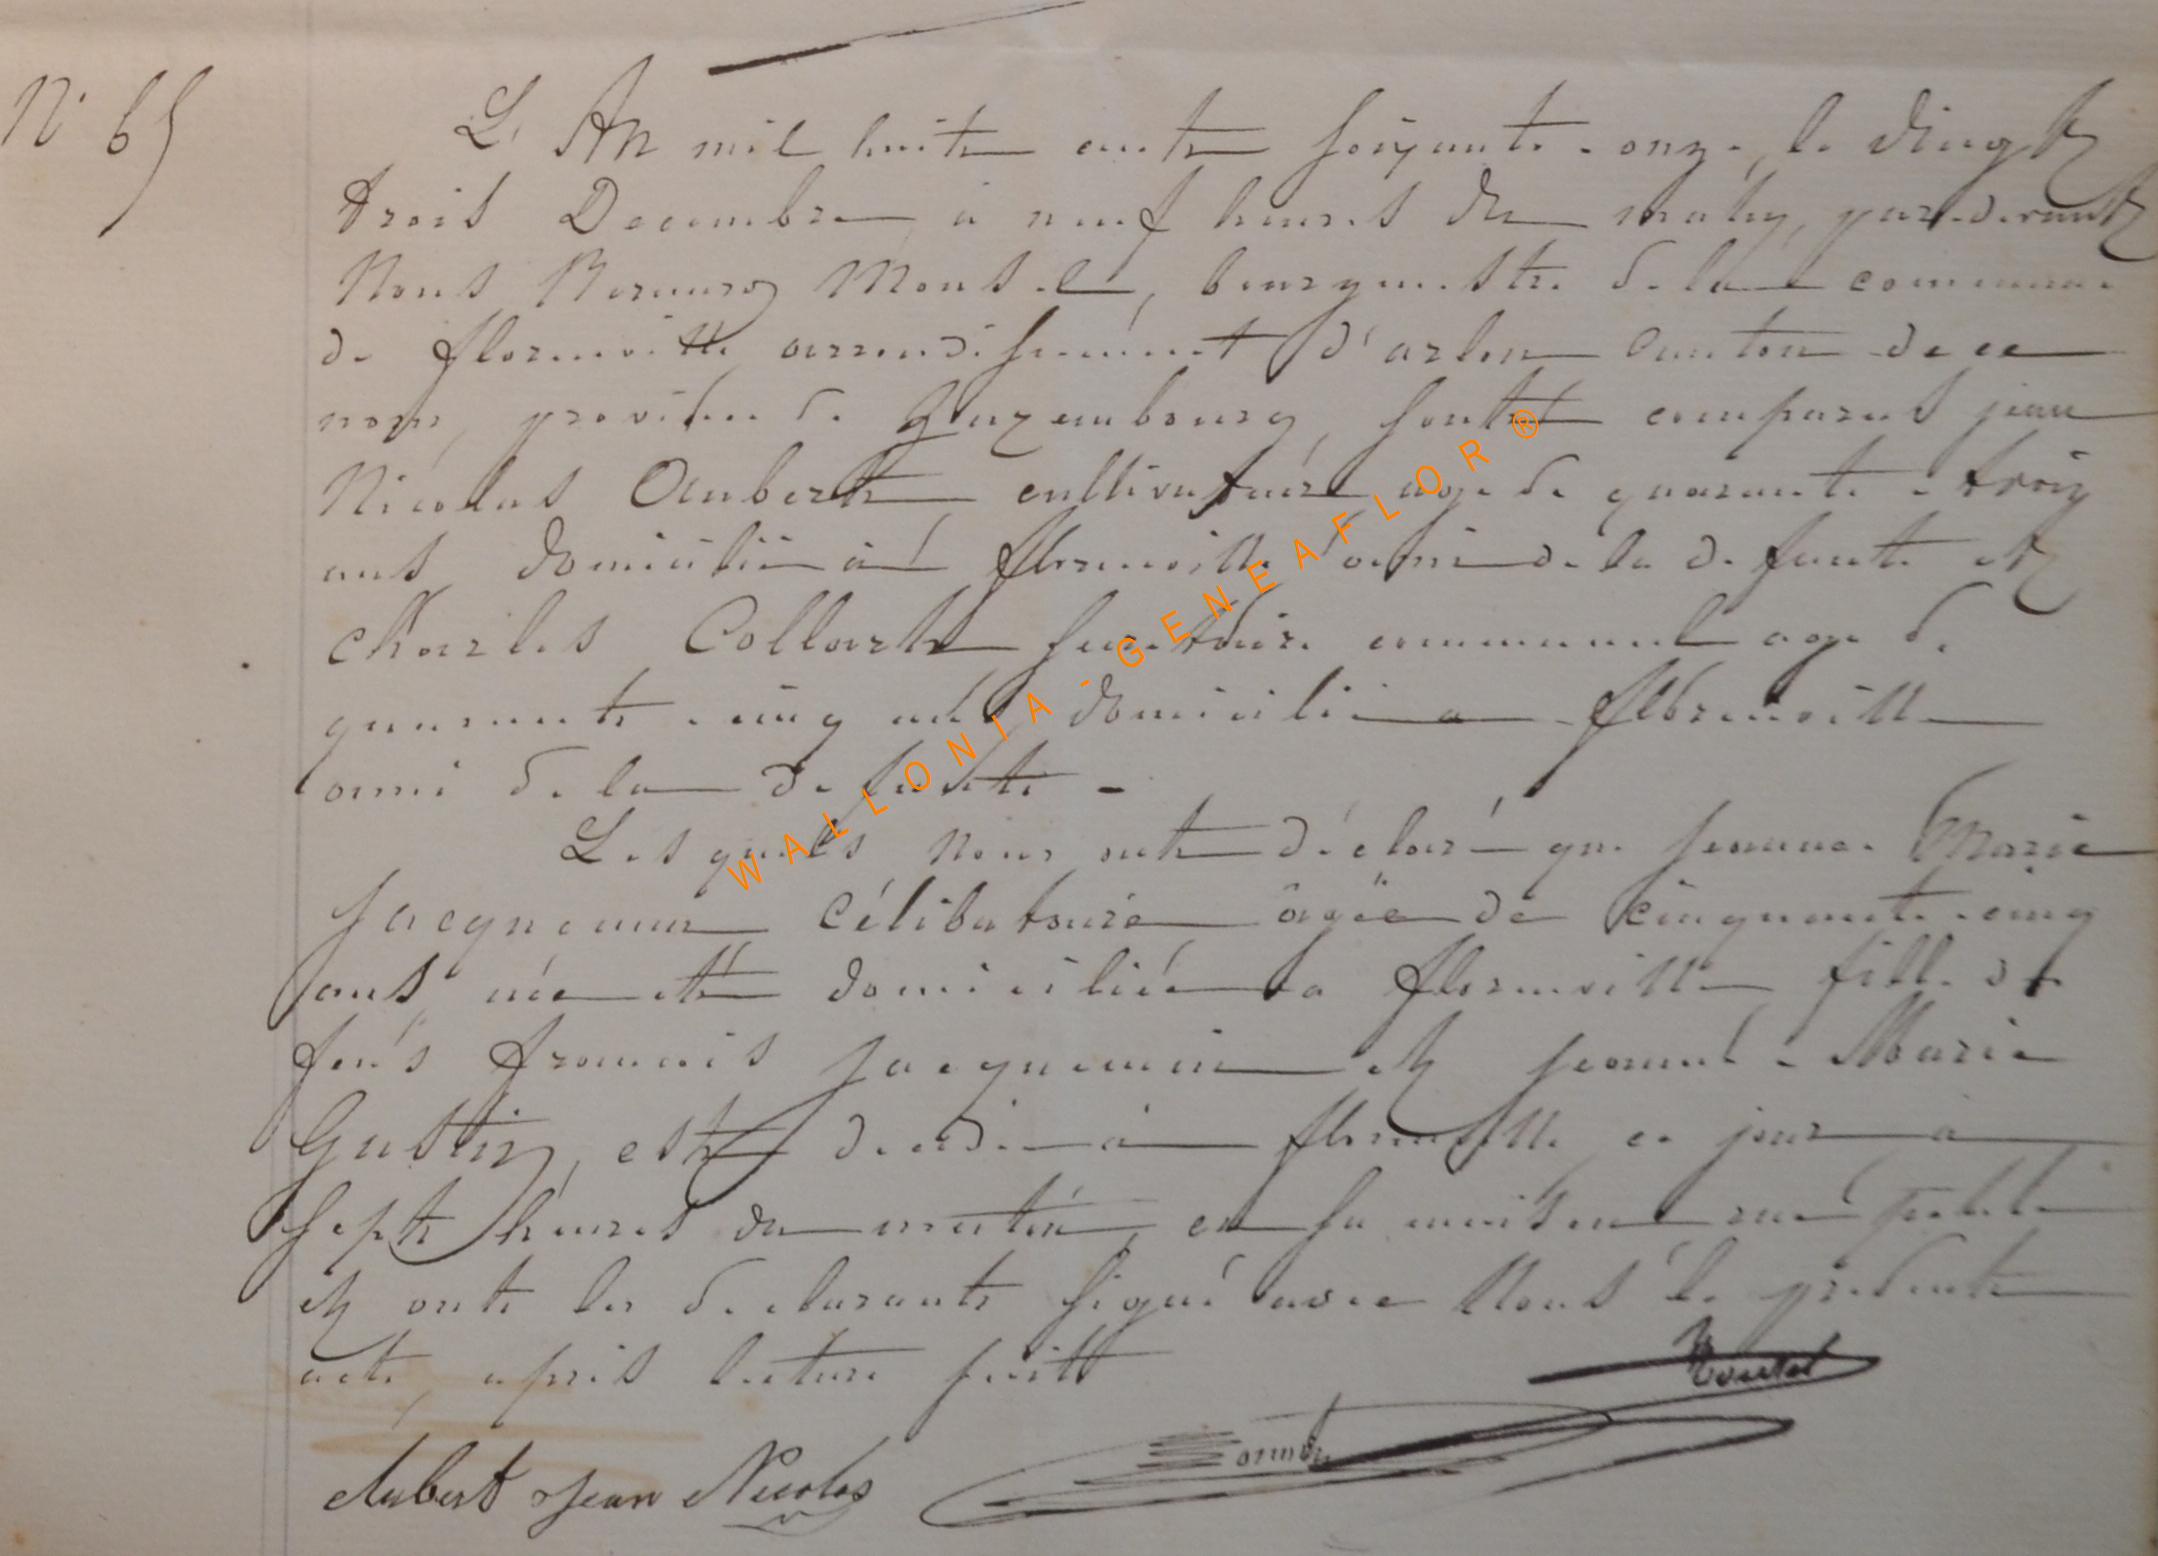 N° 65
L'An mil huit cent soixante-onze, le vingt
trois Decembre à neuf heures du matin, par-devant
Nous Monsel, bourgmestre de la commune
de florenville arrondissement d'arlon Canton de ce
nom, province de Luxembourg, sont comparus jean
Nicolas Aubert cultivateur agé de quarante-trois
ans domicilié à florenville ami de la defunte et
Charles Collart secretaire communal agé de
quarante-cinq ans domicilié a florenville
ami de la defunte -
Lesquels nous ont déclaré que jeanne Marie
jacquemin Célibataire âgée de cinquante-cinq
ans, née et domiciliée a florenville fille de
feus francois jacquemin et jeanne-Marie
Gustin, est decedée à florenville ce jour à
sept heures du matin, en sa maison rue
et ont les declarants signé avec Nous le present
acte, après lecture faite
Aubert Jean Nicolas
WALLONIA-GENEAFLOR®